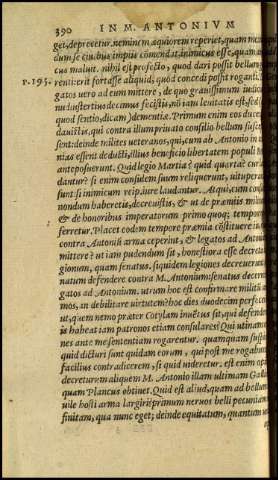 390 IN M. ANTONIVM
get, deprecetur. neminem æquiorem reperiet, quam me
dum se ciuibus impijs commendat, inimicus esse, quam
cus maluit. nihil est profecto, quod dari possit bellum
P. 195. renti: erit fortasse aliquid, quod concedi possit roganti.
gatos uero ad eum mittere, de quo grauissimum iudi
nudiustertius decimus fecistis, nō iam leuitatis est, sed
quod sentio, dicam) dementiæ. Primum enim eos duc
dauistis, qui contra illum priuato consilio bellum susce
sent: deinde milites ueteranos, qui, cum ab Antonio in
nias essent deducti, illius beneficio libertatem populi
anteposuerunt. Quid legio Martia? quid quarta? cur
dantur? si enim consulem suum reliquerunt, uituper
sunt: si inimicum reip. iure laudantur. Atqui, cum con
nondum haberetis, decreuistis, & ut de præmijs mili
& de honoribus imperatorum primo quoq; tempore
ferretur. Placet eodem tempore præmia cōstituere
contra Antoniū arma ceperint, & legatos ad Anto
mittere? ut iam pudendum sit, honestiora esse decret
gionum, quam senatus. siquidem legiones decreuerūt
natum defendere contra M. Antonium: senatus decer
gatos ad Antonium. utrum hoc est confirmare militū
mos, an debilitare uirtutem? hoc dies duodecim perfec
ut, quem nemo præter Cotylam inuētus sit, qui defend
is habeat iam patronos etiam consulares? Qui utinam
nes ante me sententiam rogarentur. quamquam susp
quid dicturi sunt quidam eorum, qui post me rogab
facilius contradicerem, si quid uideretur. est enim op
decreturum aliquem M. Antonio illam ultimam Gall
quam Plancus obtinet. Quid est aliud, quam ad bellum
uile hosti arma largiri: primum neruos belli pecuniam
finitam, qua nunc eget; deinde equitatum, quantum